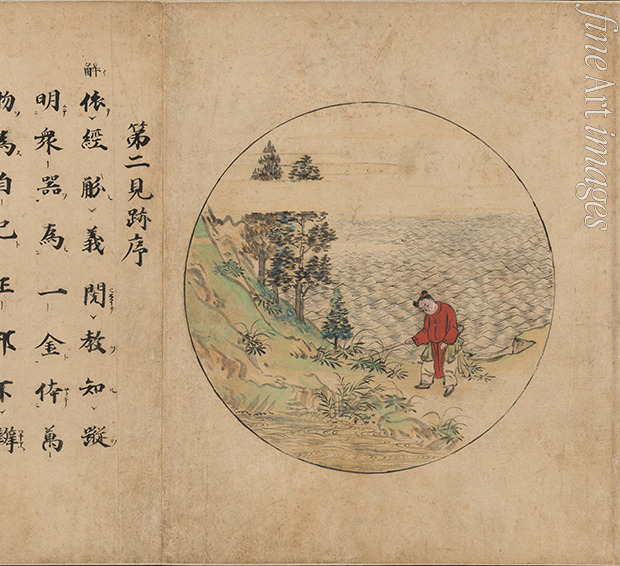 第二見跡序
觧
依經義閲教知蹤
明衆器為一金体萬
物為自己正邪不
fine Art images